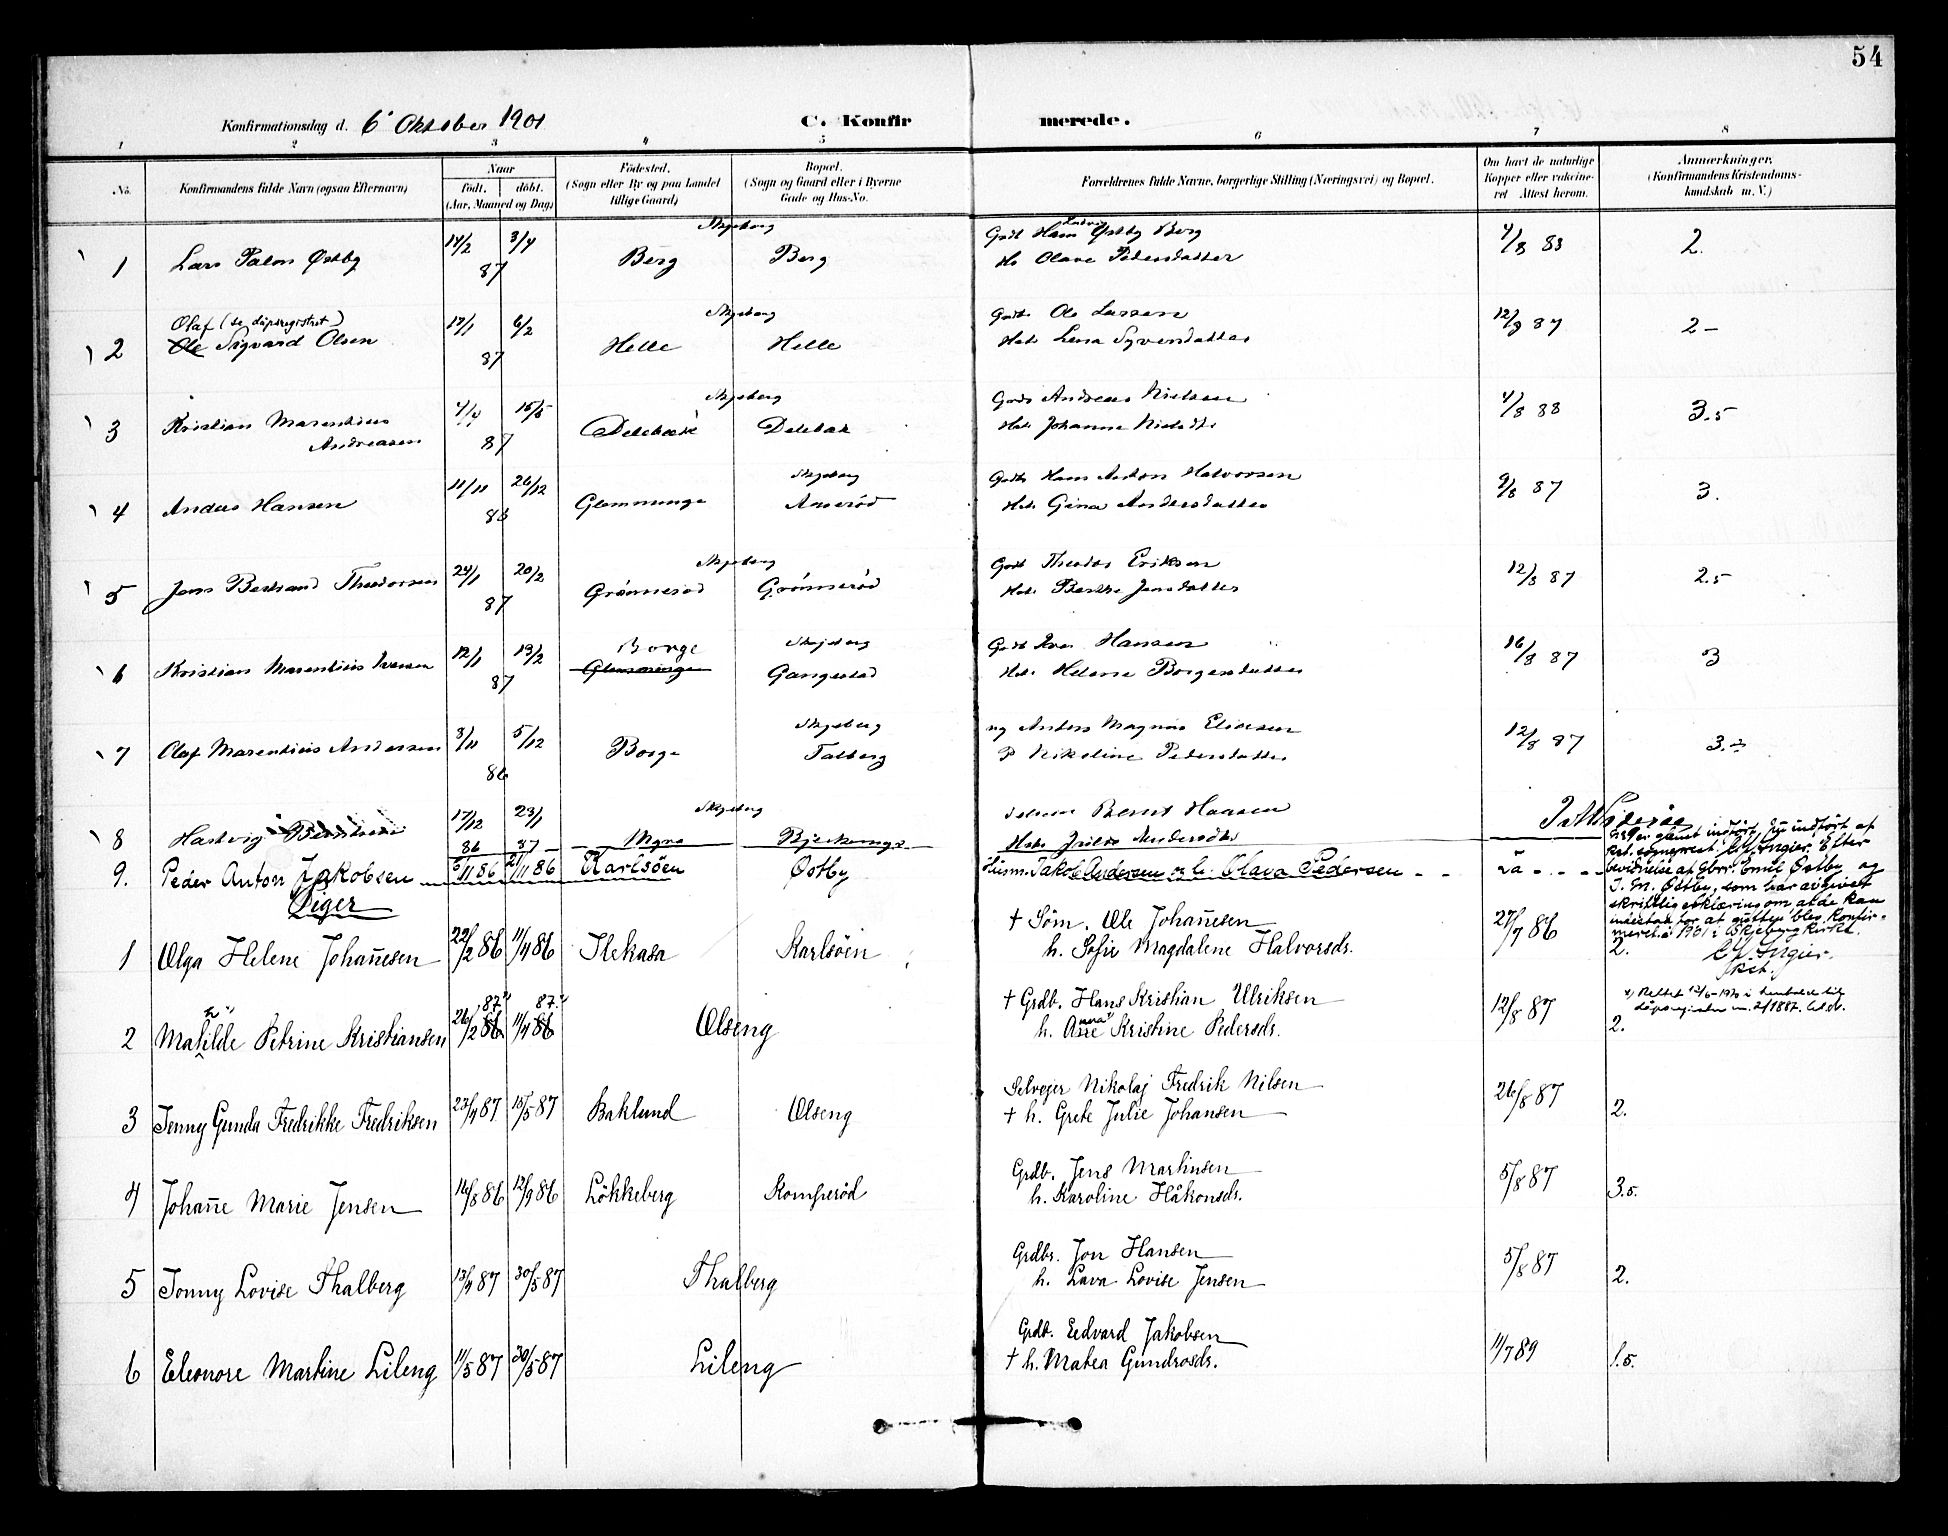 54
Konfirmationsdag d. 6' Oktober 1901
C. Konfirmerede.
1 2 3 4 5 6 7 8
No. Konfirmandens fulde Navn (ogsaa Efternavn) Naar født. døbt. (Aar, Maaned og Dag) Födested. (Sogn eller By og paa Landet tillige Gaard) Bopæl. (Sogn og Gaard eller i Byerne Gade og Hus-No. Forældrenes fulde Navne, borgerlige Stilling (Næringsvei) og Bopæl. Om havt de naturlige Kopper eller vakcineret Attest herom. Anmærkninger. (Konfirmandens Kristendomskundskab m. V.)
Skjeberg
1 Lars Palm Østby 14/2 3/4 87 Berg Berg Gbr. Hans Østby Berg
H. Olave Pedersdatter 4/8 88 2.
Olaf (se dåpsregistret) Skjeberg
2 Ole Sigvard Olsen 19/1 6/2 87 Helle Helle Ole Larsen
Lena Syversdatter 12/8 87 2 -
Skjeberg
3 Kristian Marentius Andreasen 4/4 15/5 87 Delebæk Delebæk Andreas Nielsen
Johanne 4/8 88 3.5
Skjeberg
4 Anders Hansen 11/11 26/12 86 Glemminge Hans Anton Halvorsen
Gina Andersdatter 9/8 87 3.
Skjeberg
5 Jens Bertrand Theodorsen 24/1 20/2 87 Grønnerød Grønnerød Theodor Eriksen
Berthe Jensdatter 12/8 87 2.5
Borge Skjeberg
6 Kristian Marentius Iversen 12/1 13/2 87 Glemminge Gangestad Iver Hansen
Helene Borgersdatter 16/8 87 3
Skjeberg
7 Olaf Marentius Andersen 3/11 5/12 86 Borge Talberg Anders Magnus Eliasen
P Nikoline Pedersdatter 12/8 87 3.÷
Skjeberg
8 Hartvig Berntsen 17/12 86 23/1 87 Bernt Hansen
9. Peder Anton Jakobsen 86 /11 86 Karlsöen Østby Husm. Jakob Andersen og h. Olava Pedersen
Nr. 9 er glemt indført, Nu indført af
Res. sogneprest Chr. Ingier. Efter
bevidnelse af Gbrr. Emil Østby og
J. M. Østby, som har avgivet
skriftlig erklæring om at de kan
mindes for at gutten blev konfirmeret i 1901 i Skjeberg kirke.
Chr. Ingier.
Piger
1 Olga Helene Johañesen 22/2 86 11/4 86 Ilekasa Karlsöen † Söm. Ole Johañesen
h. Sofie Magdalene Halvorsds. 27/7 86 2.
2 Mathilde Petrine Kristiansen 26/2 86 87 11/4 86 87 Olseng † Grdb. Hans Kristian Ulriksen
h. Anne Kristine Pedersds. 12/8 87 2.
3 Jenny Gunda Fredrikke Fredriksen 23/4 87 15/5 87 Baklund Olseng Selvejer Nikolaj Fredrik Nilsen
† h. Grete Julie Johansen 26/8 87 2.
4 Johañe Marie Jensen 16/8 86 12/9 86 Lökkeberg Romperöd Grdb. Jens Martinsen
h. Karoline Håkonsds. 5/8 87 3.5.
5 Jonny Lovise Thalberg 13/4 87 30/5 87 Thalberg Grdbr. Jon Hansen
h. Lava Lovise Jensen 5/8 87 2.
6 Eleonore Martine Lileng 11/5 87 30/5 87 Lileng Grdb. Edvard Jakobsen
† h. Matea Gundrosds. 11/7 89 1.5.